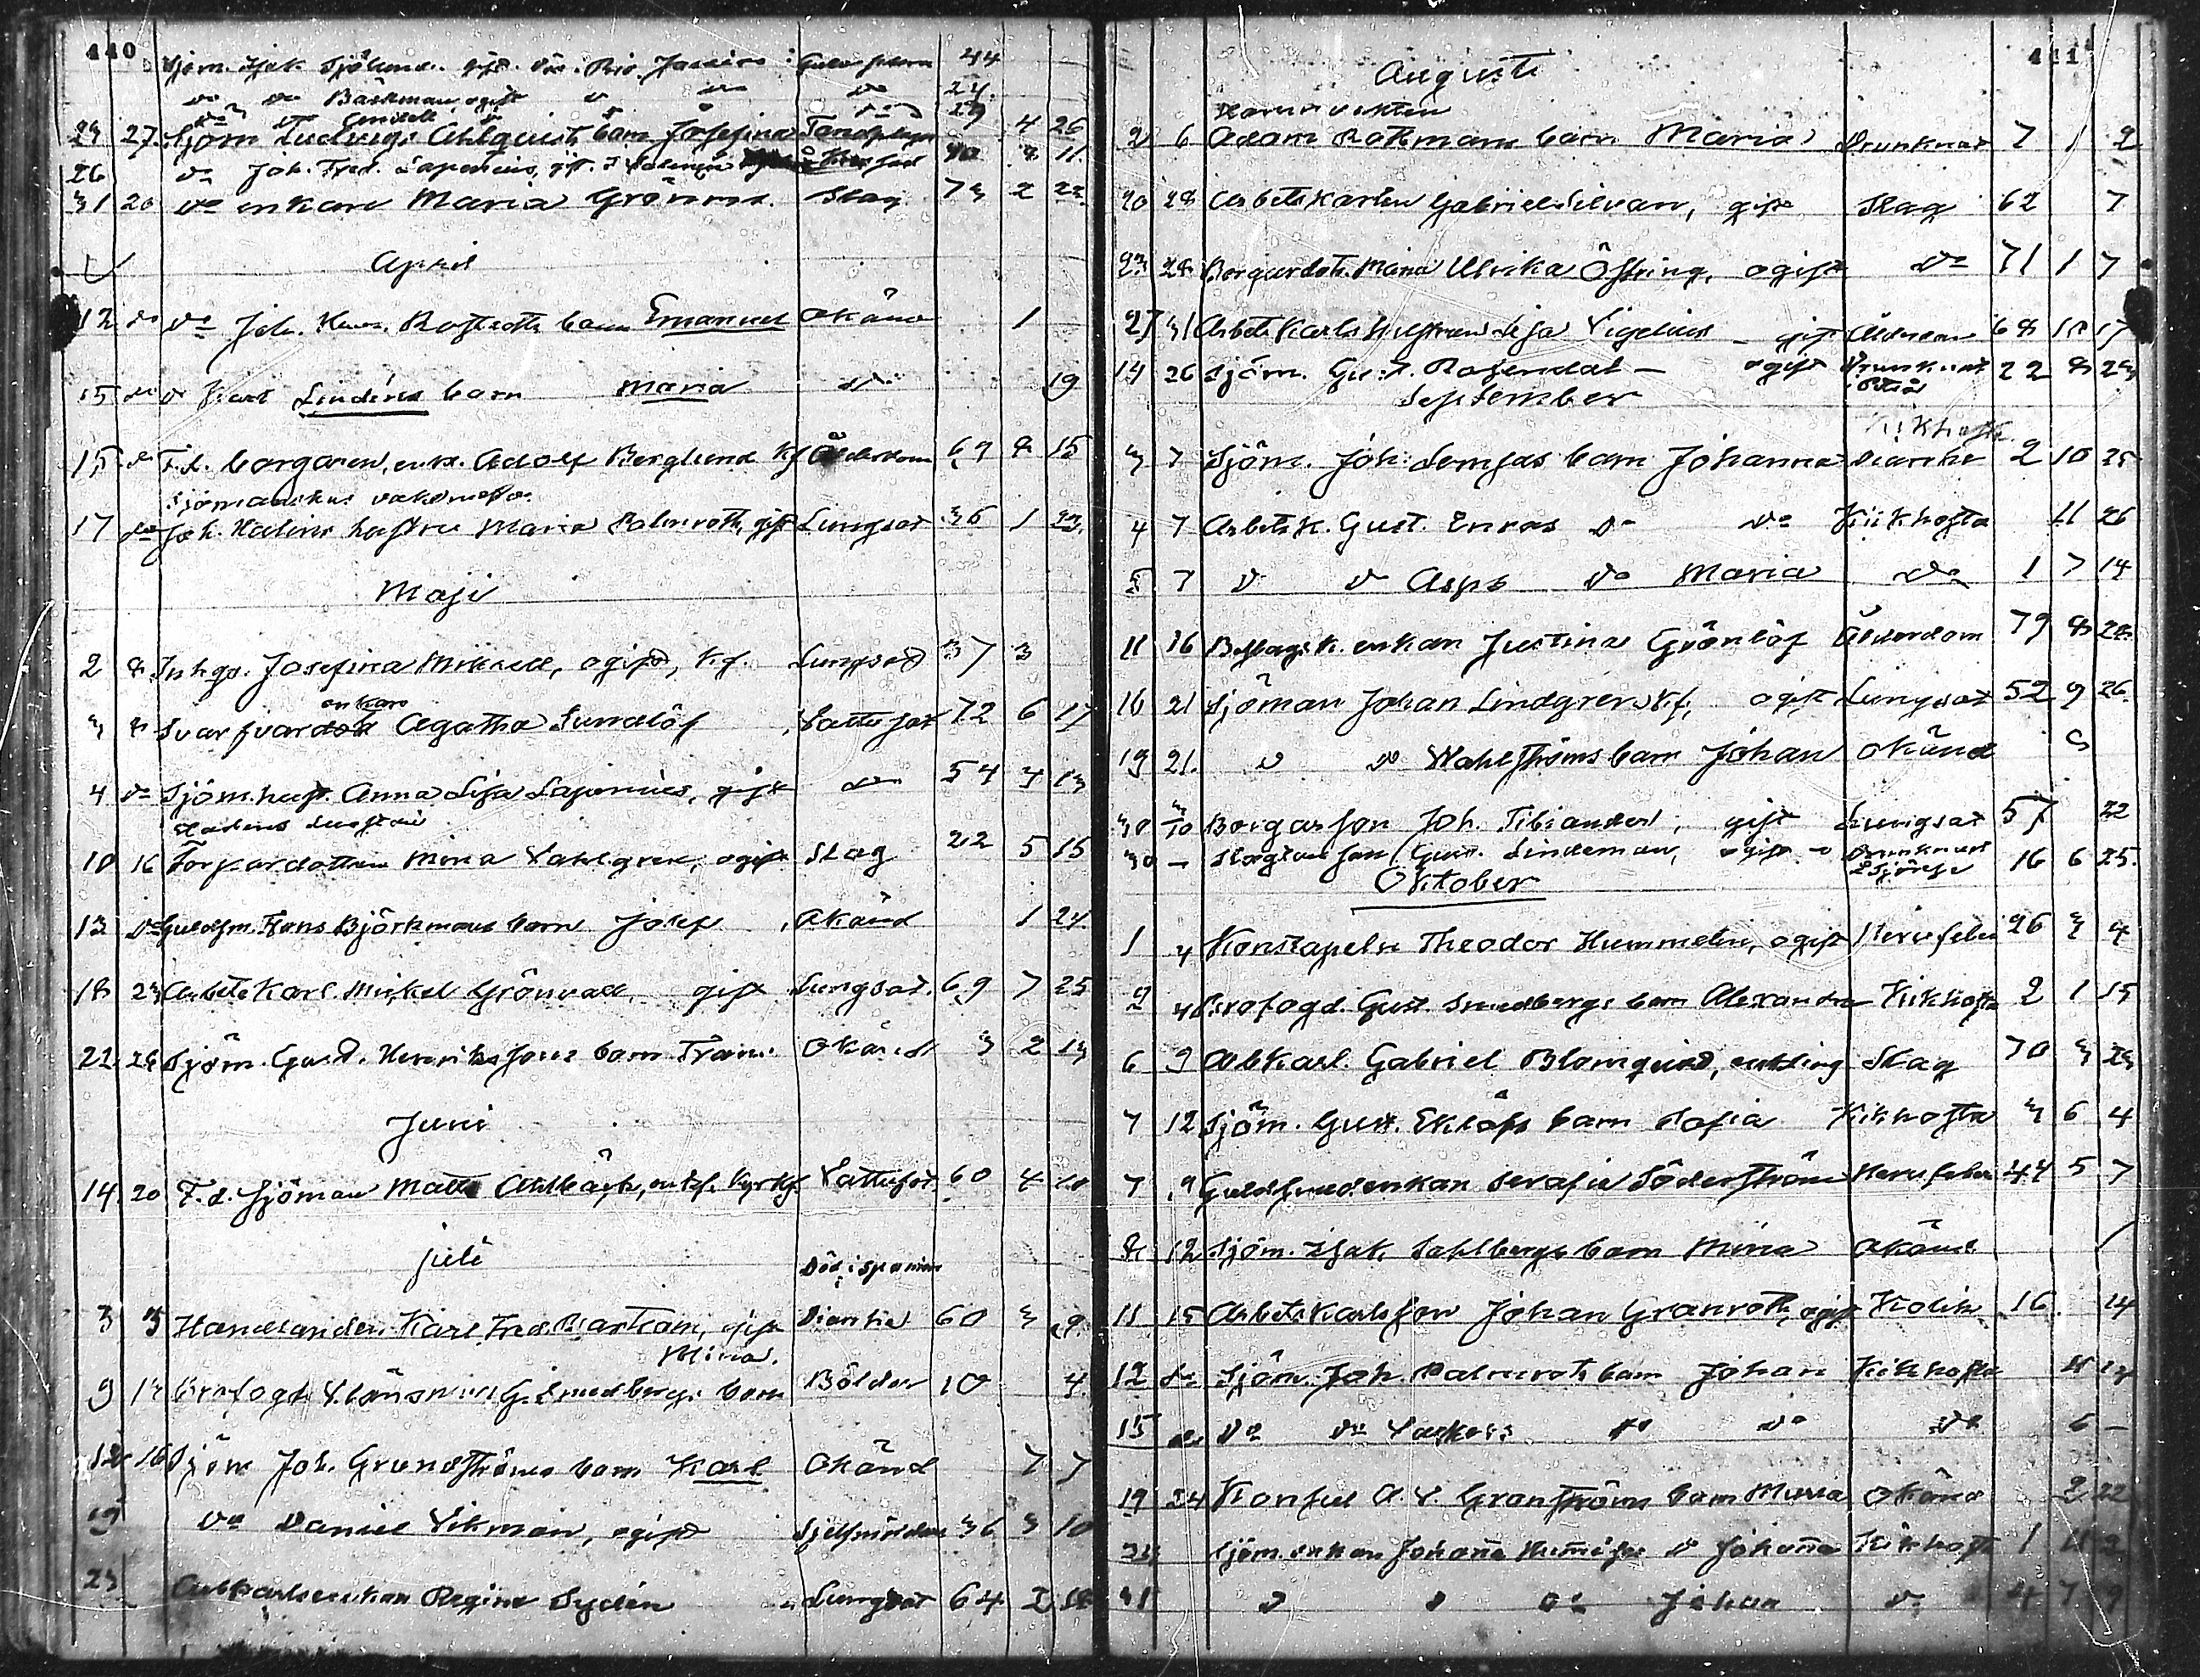 440
Sjöm. Isak Sjölund. gift. Rio Janeiro Gula febern 44
do do Bäckman ogift do do do 24
do do 29
23 27 Sjöm Ludvig Ahlquists barn Josefina 4 26
26 do Joh. Fred. Laxenius, gift 11
31 20 do enkan Maria Grönros Slag 73 2 22
April
12 do do Joh. barn Emanuel Okänd 1
15 do do Karl Lindéns barn Maria do 19
15 do F.d. borgaren, enkl. Adolf Berglund Kf Ålderdom 69 8 15
Sjömanshus vaktmast.
17 do Joh. Hedins hustru Maria Palmroth, gift Lungsot 36 1 23
Maji
2 8 Inhys. Josefina Mikaell, ogift, Kf. Lungsot 37 3
enkan
3 8 Svarfvar Agatha Sundlöf Vattusot 72 6 17
4 do Sjöm.hust. Anna Lisa Laxenius, gift do 54 3 13
10 16 dottern Mina Vahlgren, ogift Slag 22 5 15
13 do Guldsm. Frans Björkmans barn Josef Okänd 1 24
18 23 Arbets Karl. Mickel Grönvall, gift Lungsot. 69 7 25
22 28 Sjöm. Gust. Henrikssons barn Frans Okänd 3 2 13
Juni
14 20 F.d. Sjöman Matts Ahlbäck, Vattusot 60 4 10
Juli
Död i Spanien
3 3 Handlanden Karl Fred. Bartram, gift Diarrhé 60 3 9
Mina.
9 13 Brofogd. G. Smedbergs barn Bölder 10 4
12 16 Sjöm Joh. Grundströms barn Karl Okänd 7 7
19 do Daniel Vikman, ogift Sjelfmördare 36 3 10
23 Arbkarlsenkan Regina Sydén Lungsot 64 2 18
411
Augusti
Hamnvakten
2 6 Adam Rotkmans barn Maria Drunknat 7 1 2
20 28 Arbetskarlen Gabriel Silvan, gift Slag 62 7
23 28 Borgardot. Maria Ulrika Östring, ogift do 71 1 7
27 31 Arbets Karls hustrun Lisa Vigelius gift Ålderdom 68 10 17
14 26 Sjöm. Gust. Rosendal — ogift Drunknat 22 8 23
September
Kikhosta
3 7 Sjöm. Joh. barn Johanna Diarrhe 2 10 25
4 7 Arbetsk. Gust. Enros do do Kikhosta 11 26
5 7 do do Asps do Maria do 1 7 14
11 16 enkan Justina Grönlöf Ålderdom 79 8 28
16 21 Sjöman Johan Lindgren Kf, ogift Lungsot 52 9 26
19 21. do do Wahlströms barn Johan okänd 9
30 3/10 Borgarson Joh. Tibiander, gift Lungsot 57 22
30 — son Gust. Lindeman, ogift Drunknat 16 6 25.
Oktober
1 4 Konstapeln Theodor Hummelin, ogift Nervfeber 26 3 4
2 4 Brofogd. Gust. Smedbergs barn Alexandra Kikhosta 2 1 15
6 9 Arbkarl. Gabriel Blomquist, enkling Slag 70 3 23
7 12 Sjöm. Gust. Eklöfs barn Sofia Kikhosta 3 6 4
7 9 Guldsmedenkan Serafia Söderström Nervfeber 44 5 7
8 12 Sjöm. Isak Sahlbergs barn Mina Okänd 1
11 15 Arbetskarlsson Johan Granroth, ogift Kolik 16 14
12 do Sjöm. Joh. Palmroth barn Johan Kikhosta 11 13
15 do do do do do do 6 —
19 24 Konsul A. V. Granströms barn Maria Okänd 2 22
Sjöm.enkan Johanna do Johanna Kikhosta 1 11 2
31 do do do Johan do 4 7 9